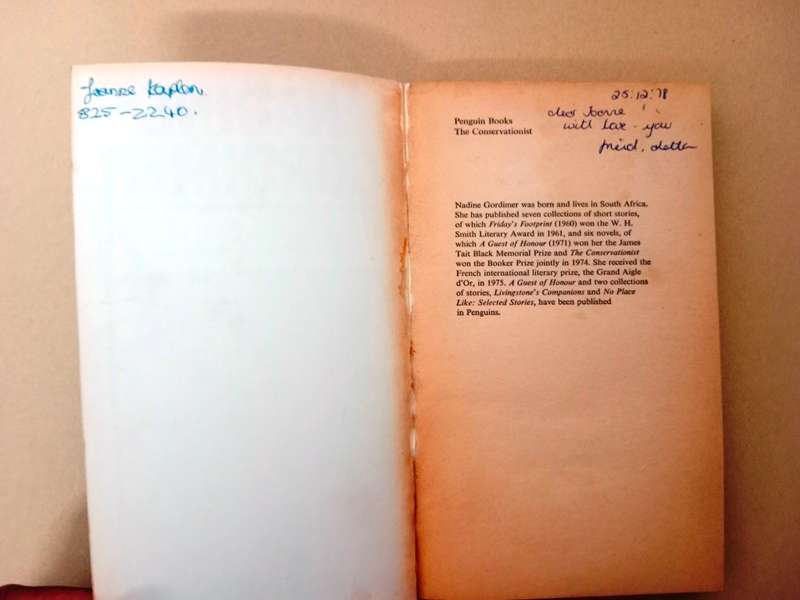 Joanne Kaplan.
825-2240.
25.12.78
dear Joanne
with love - you
friend,
Penguin Books
The Conservationist
Nadine Gordimer was born and lives in South Africa.
She has published seven collections of short stories,
of which Friday's Footprint (1960) won the W. H.
Smith Literary Award in 1961, and six novels, of
which A Guest of Honour (1971) won her the James
Tait Black Memorial Prize and The Conservationist
won the Booker Prize jointly in 1974. She received the
French international literary prize, the Grand Aigle
d'Or, in 1975. A Guest of Honour and two collections
of stories, Livingstone's Companions and No Place
Like: Selected Stories, have been published
in Penguins.